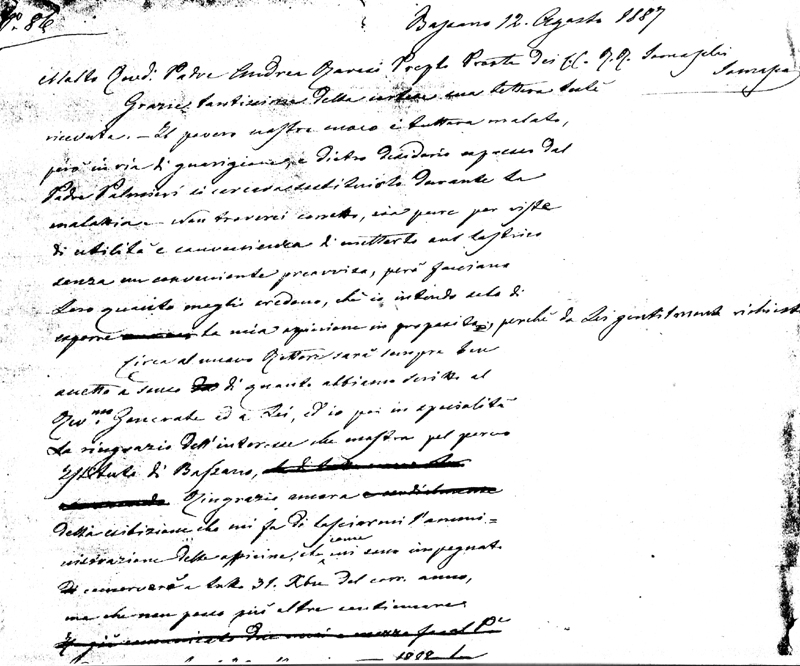 N.º 86
Bassano 12. Agosto 1887
Molto Revd. Padre Andrea Ravasi Prep.to Prov.le dei C.C. R.R. Somaschi
Somasca
Grazie tantissime della cortese sua lettera testè
ricevuta. — Il povero nostro cuoco è tuttora malato,
però in via di guarigione, e dietro desiderio espresso dal
Padre Palmieri si cercava sostituirlo durante la
malattia. — Non troverei corretto, sia pure per viste
di utilità e convenienza di metterlo sul lastrico
senza un conveniente preavviso, però facciano
Loro quanto meglio credono, chè io intendo solo di
esporre la mia opinione in proposito, perchè da Lei gentilmente richiesta
Circa al nuovo Rettore sarà sempre ben
accetto a senso di quanto abbiamo scritto al
Rev.mo Generale ed a Lei, ed io poi in specialità
La ringrazio dell'interesse che mostra pel povero
Istituto di Bassano,
Ringrazio ancora e cordialmente
della esibizione che mi fa di lasciarmi l'ammi=
nistrazione delle officine, chè come mi sono impegnato
conserverò a tutto 31. Xbre del corr. anno,
ma che non posso più oltre continuare.